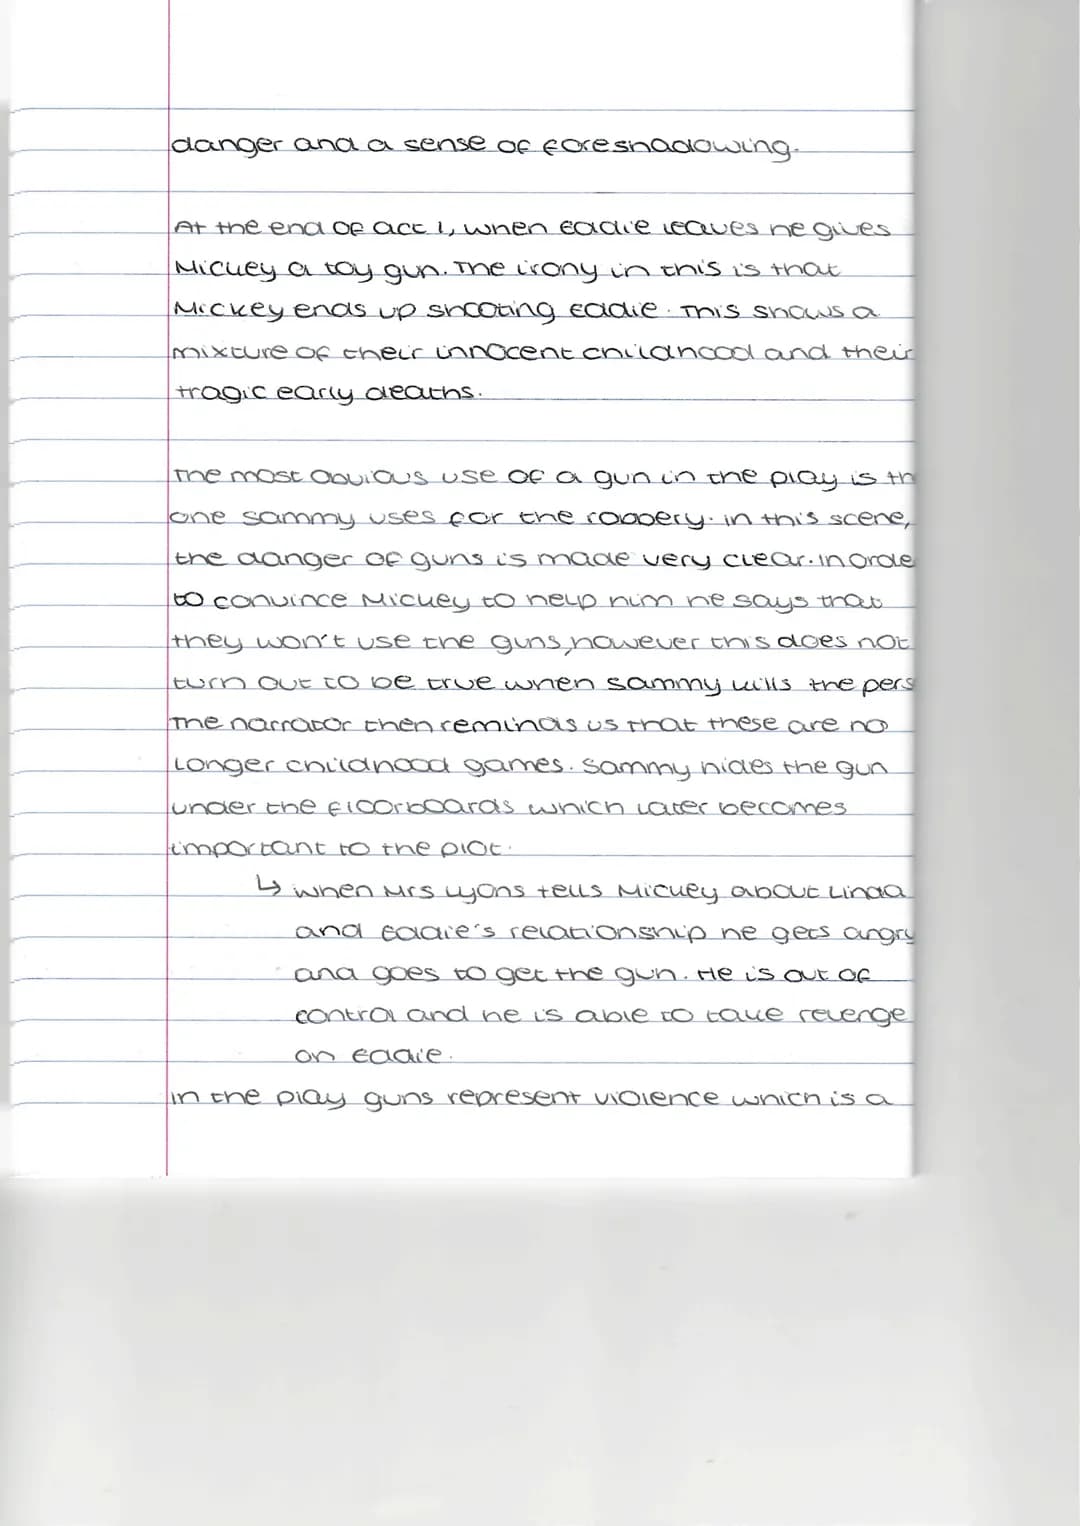 danger and a sense of foreshadowing.
At the end of act 1, when Eddie leaves he gives
Mickey a toy gun. The irony in this is that
Mickey ends up shooting Eddie. This shows a
mixture of their innocent childhood and their
tragic early deaths.
The most obvious use of a gun in the play is th
one Sammy uses for the robbery. in this scene,
the danger of guns is made very clear. in orde
to convince Mickey to help him he says that
they won't use the guns, however this does not
turn out to be true when Sammy kills the pers
The narrator then reminds us that these are no
longer childhood games. Sammy hides the gun
under the floorboards which later becomes
important to the plot.
↳ when Mrs Lyons tells Mickey about Linda
and Eddie's relationship he gets angry
and goes to get the gun. He is out of
control and he is able to take revenge
on Eddie.
in the play guns represent violence which is a